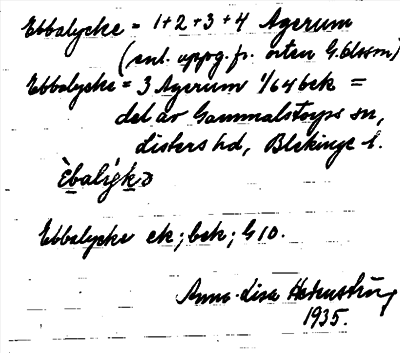 Ebbalycke = 1+2+3+4 Agerum
(enl. uppg. fr. orten G. Olsson)
Ebbalycke = 3 Agerum 1/64 bek =
del av Gammalstorps sn,
Listers hd, Blekinge l.
Ebbalycke ek; bek; G 10.
Anna-Lisa Hedenström
1935.